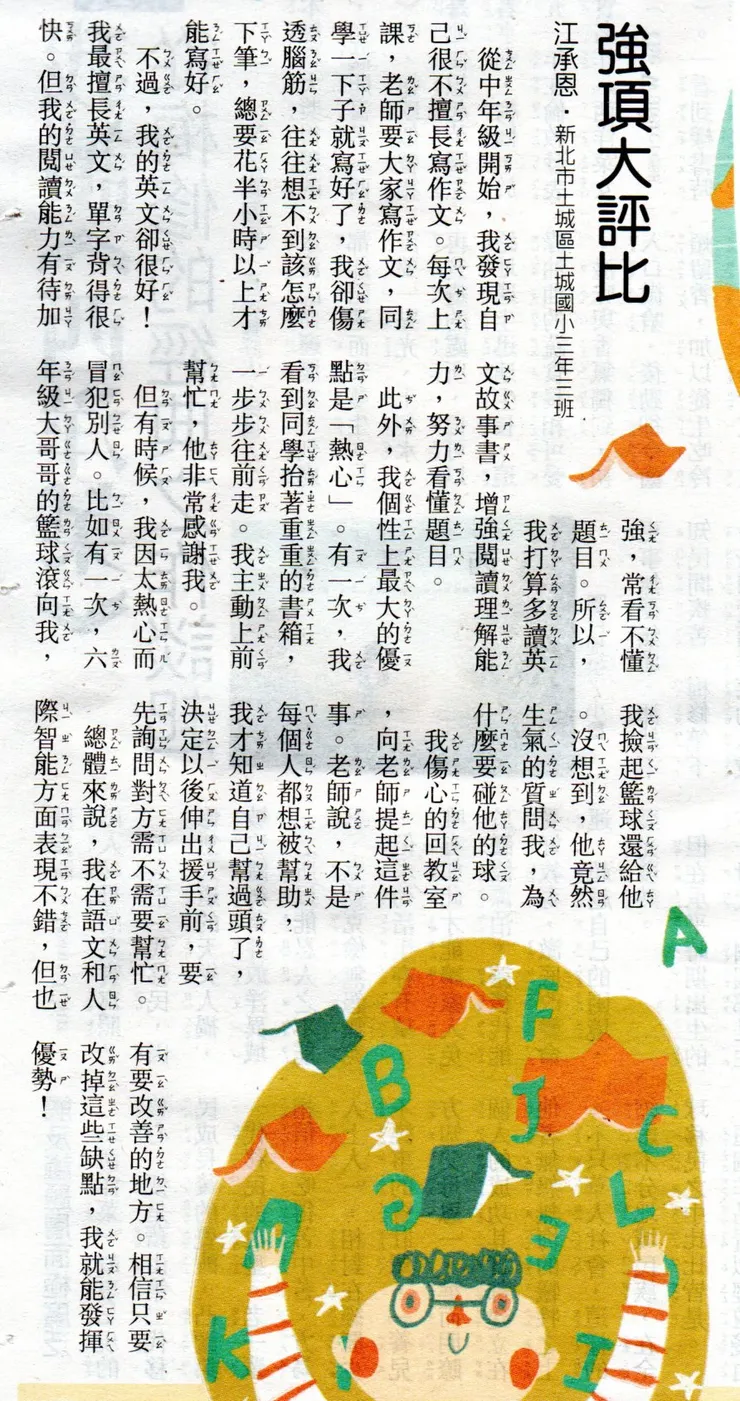 強項大評比
江承恩．新北市土城區土城國小三年三班
從中年級開始，我發現自
己很不擅長寫作文。每次上
課，老師要大家寫作文，同
學一下子就寫好了，我卻傷
透腦筋，往往想不到該怎麼
下筆，總要花半小時以上才
能寫好。
不過，我的英文卻很好！
我最擅長英文，單字背得很
快。但我的閱讀能力有待加
強，常看不懂
題目。所以，
我打算多讀英
文故事書，增強閱讀理解能
力，努力看懂題目。
此外，我個性上最大的優
點是「熱心」。有一次，我
看到同學抬著重重的書箱，
一步步往前走。我主動上前
幫忙，他非常感謝我。
但有時候，我因太熱心而
冒犯別人。比如有一次，六
年級大哥哥的籃球滾向我，
我撿起籃球還給他
。沒想到，他竟然
生氣的質問我，為
什麼要碰他的球。
我傷心的回教室
，向老師提起這件
事。老師說，不是
每個人都想被幫助，
我才知道自己幫過頭了，
決定以後伸出援手前，要
先詢問對方需不需要幫忙。
總體來說，我在語文和人
際智能方面表現不錯，但也
有要改善的地方。相信只要
改掉這些缺點，我就能發揮
優勢！
A
F
B
J
C
G
L
E
K
I